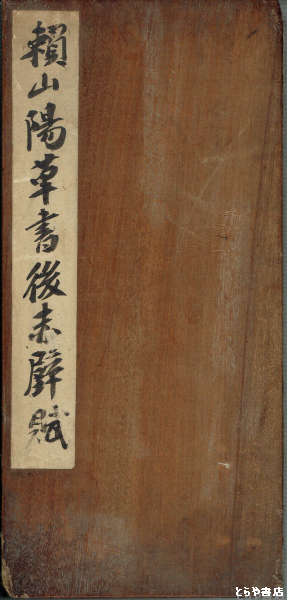 頼山陽草書後赤壁賦
とらや書店